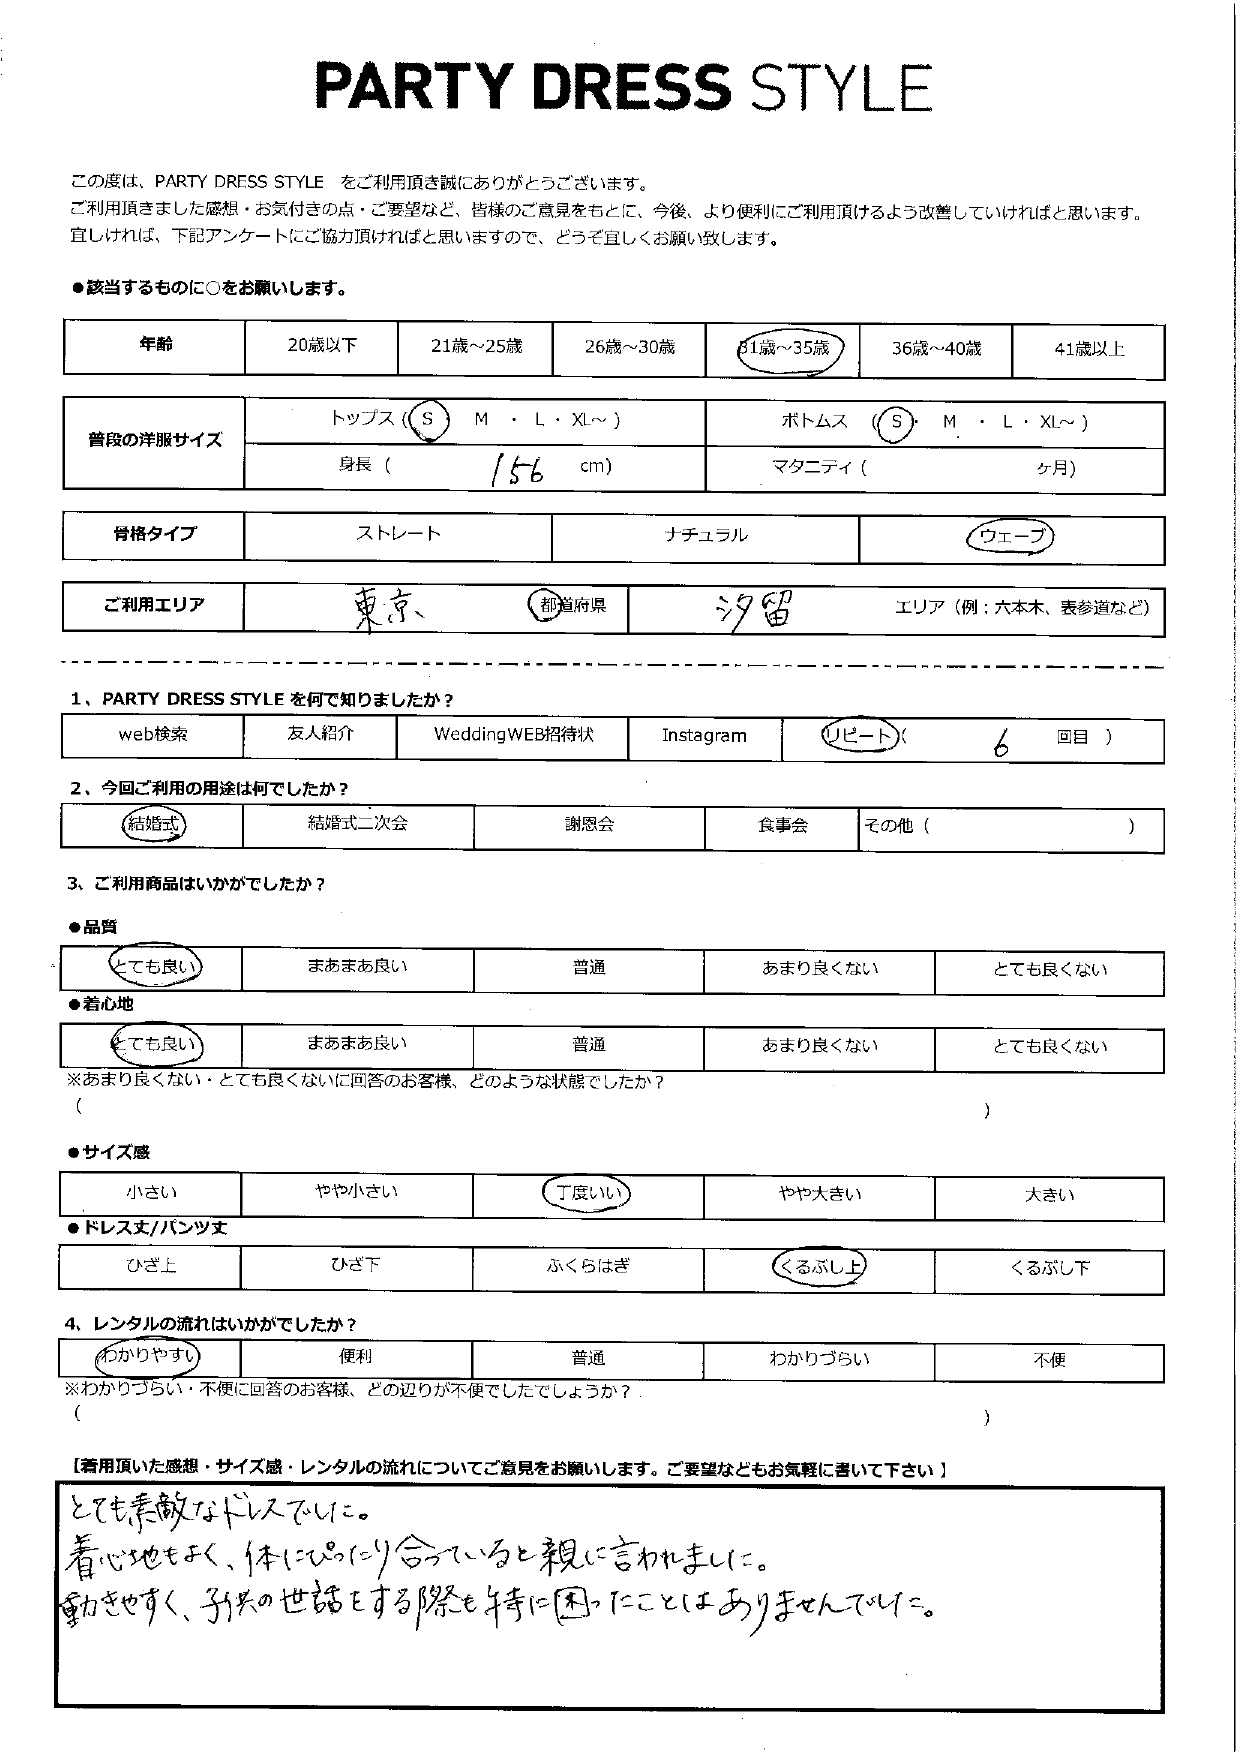 PARTY DRESS STYLE
この度は、PARTY DRESS STYLE　をご利用頂き誠にありがとうございます。
ご利用頂きました感想・お気付きの点・ご要望など、皆様のご意見をもとに、今後、より便利にご利用頂けるよう改善していければと思います。
宜しければ、下記アンケートにご協力頂ければと思いますので、どうぞ宜しくお願い致します。
●該当するものに○をお願いします。
年齢 20歳以下 21歳～25歳 26歳～30歳 31歳～35歳 36歳～40歳 41歳以上
普段の洋服サイズ
トップス ( S ・ M ・ L ・ XL～ ) ボトムス ( S ・ M ・ L ・ XL～ )
身長 ( 156 cm) マタニティ ( ヶ月)
骨格タイプ ストレート ナチュラル ウェーブ
ご利用エリア 東京、 都道府県 汐留 エリア（例：六本木、表参道など）
1、PARTY DRESS STYLE を何で知りましたか？
web検索 友人紹介 WeddingWEB招待状 Instagram リピート( 6 回目 )
2、今回ご利用の用途は何でしたか？
結婚式 結婚式二次会 謝恩会 食事会 その他 ( )
3、ご利用商品はいかがでしたか？
●品質
とても良い まあまあ良い 普通 あまり良くない とても良くない
●着心地
とても良い まあまあ良い 普通 あまり良くない とても良くない
※あまり良くない・とても良くないに回答のお客様、どのような状態でしたか？
( )
●サイズ感
小さい やや小さい 丁度いい やや大きい 大きい
●ドレス丈/パンツ丈
ひざ上 ひざ下 ふくらはぎ くるぶし上 くるぶし下
4、レンタルの流れはいかがでしたか？
わかりやすい 便利 普通 わかりづらい 不便
※わかりづらい・不便に回答のお客様、どの辺りが不便でしたでしょうか？
( )
【着用頂いた感想・サイズ感・レンタルの流れについてご意見をお願いします。ご要望などもお気軽に書いて下さい】
とても素敵なドレスでした。
着心地もよく、体にぴったり合っていると親に言われました。
動きやすく、子供の世話をする際も特に困ったことはありませんでした。